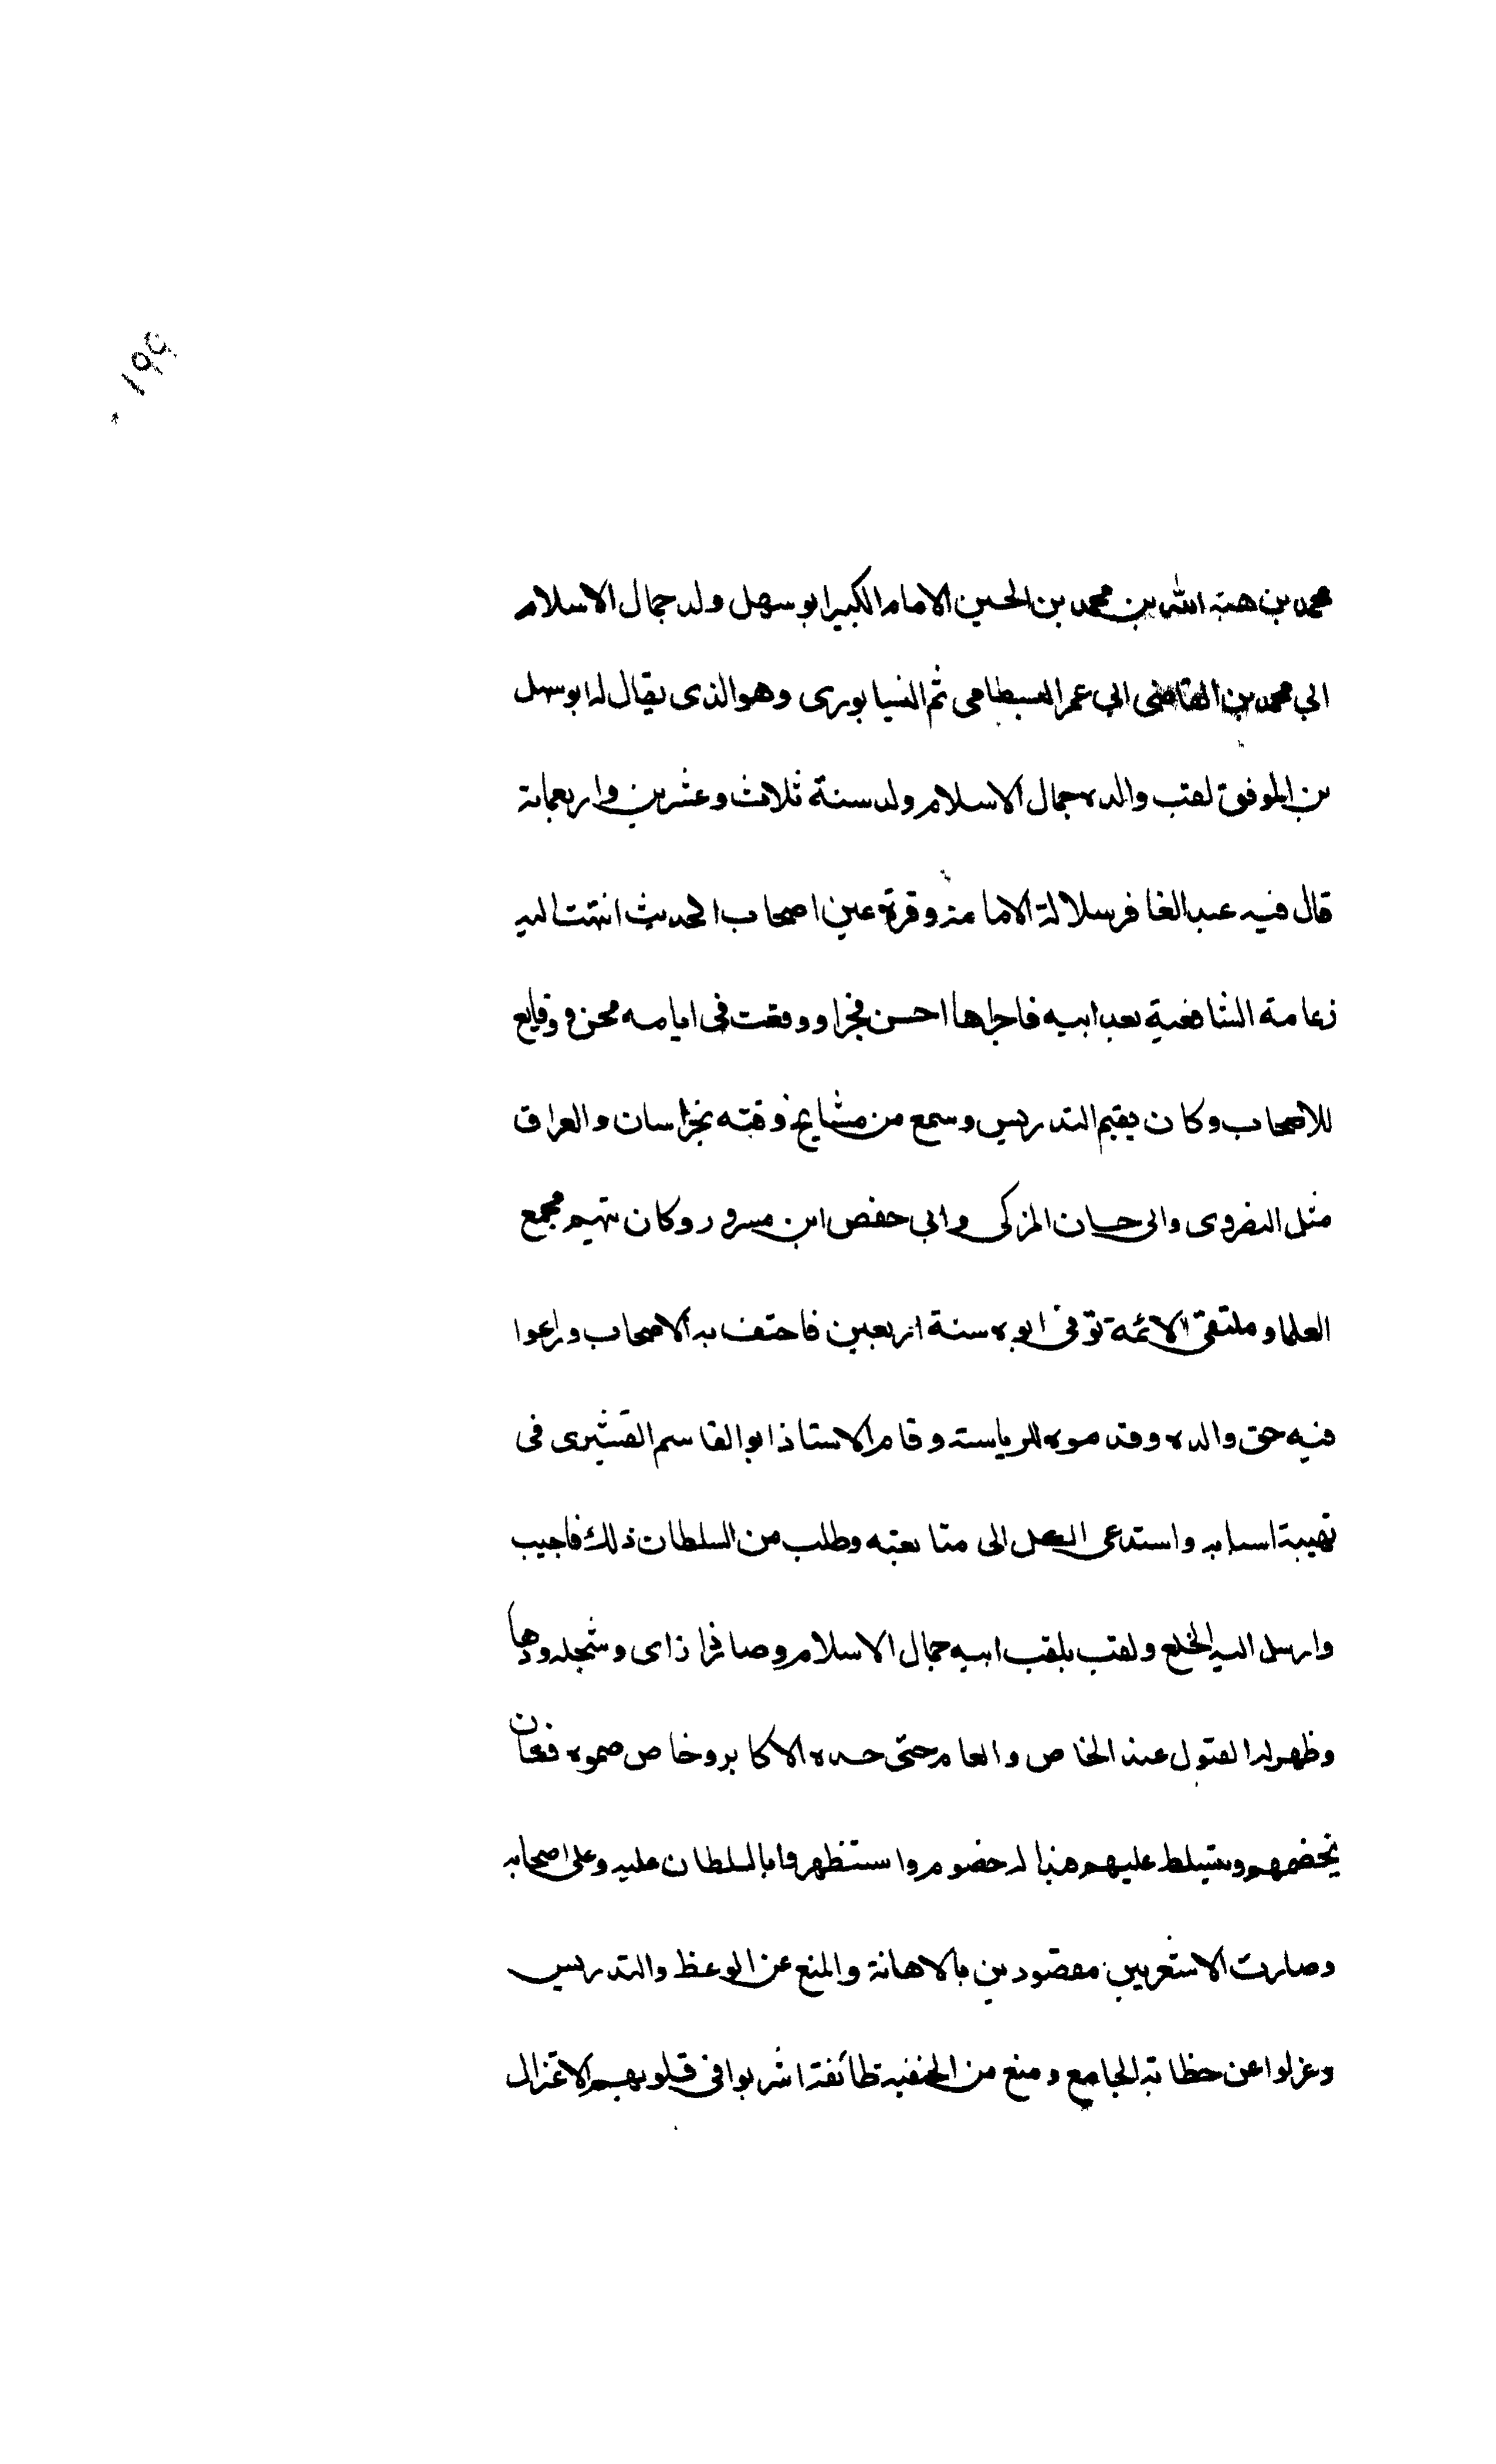 محمد بن هبة الله بن محمد بن الحسين الامام الكبير ابو سهل ولد جمال الاسلام
ابي محمد بن القاضي ابي عمر البسطامى ثم النسيابورى وهو الذى يقال له ابو سهل
بن الموفق لقب والده جمال الاسلام ولد سنة ثلاث وعشرين واربعماىة
قال فيه عبد الغافر سلالة الامامة وقرة عين اصحاب الحديث انتهت اليه
زعامة الشافعية بعد ابيه فاجراها احسن مجرا ووقعت فى ايامه محن ووقايع
للاصحاب وكان يقيم التدريس وسمع من مشايخ وقته بخراسان والعراق
مثل النصروى وابى حسان المزكى وابى حفص ابن مسرور وكان بيتهم مجمع
العلما وملتقى الائمة توفى ابوه سنة اربعين فاحتف به الاصحاب وراعوا
فيه حق والده وقدموه للرياسة وقام الاستاذ ابو القاسم القشيرى فى
تهيبة اسبابه واستدعى الكل الى متابعته وطلب من السلطان ذلك فاجيب
وارسل اليه الخلع ولقب بلقب ابيه جمال الاسلام وصار ذا راى وشجاعة ودها
وظهر له القبول عند الخاص والعام حتى حسده الاكابر وخاصموه فكان
يخصمهم ويتسلط عليهم فبدا له خصوم واستظهروا بالسلطان عليه وعلى اصحابه
وصارت الاشعريين مقصودين بالاهانة والمنع عن الوعظ والتدريس
وعزلوا عن خطابة الجامع ومنع من الحنفية طائفة اشربوا فى قلوبهم الاعتزال